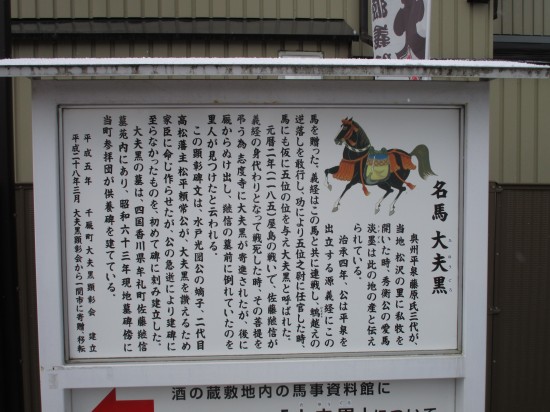 名馬 大夫黒
奥州平泉藤原氏三代が、
当地 松沢の里に私牧を
開いた時、秀衡公の愛馬
淡墨は此の地の産と伝え
られている。
治承四年、公は平泉を
出立する源 義経にこの
馬を贈った、義経はこの馬と共に連戦し、鵯越えの
逆落しを敢行し、功により五位之尉に任官した時、
馬にも仮に五位の位を与え大夫黒と呼ばれた。
元暦二年(一一八五)屋島の戦いで、佐藤継信が
義経の身代わりとなって戦死した時、その菩提を
弔う為 志度寺に大夫黒が寄進されたが、後に
厩からぬけ出し、継信の墓前に倒れていたのを
里人が見つけたと云われる。
この顕彰碑文は、水戸光圀公の嫡子、二代目
高松藩主松平頼常公が、大夫黒を讃えるため
家臣に命じ作らせたが、公の急逝により建碑に
至らなかったものを、初めて碑に刻み建立した。
大夫黒の墓は、四国香川県牟礼町佐藤継信の
墓苑内にあり、昭和六十三年現地墓碑傍に
当町参拝団が供養碑を建てている。
平成五年 千厩町大夫黒顕彰会 建立
平成二十八年三月 大夫黒顕彰会から一関市に寄贈、移転
酒の蔵敷地内の馬事資料館に